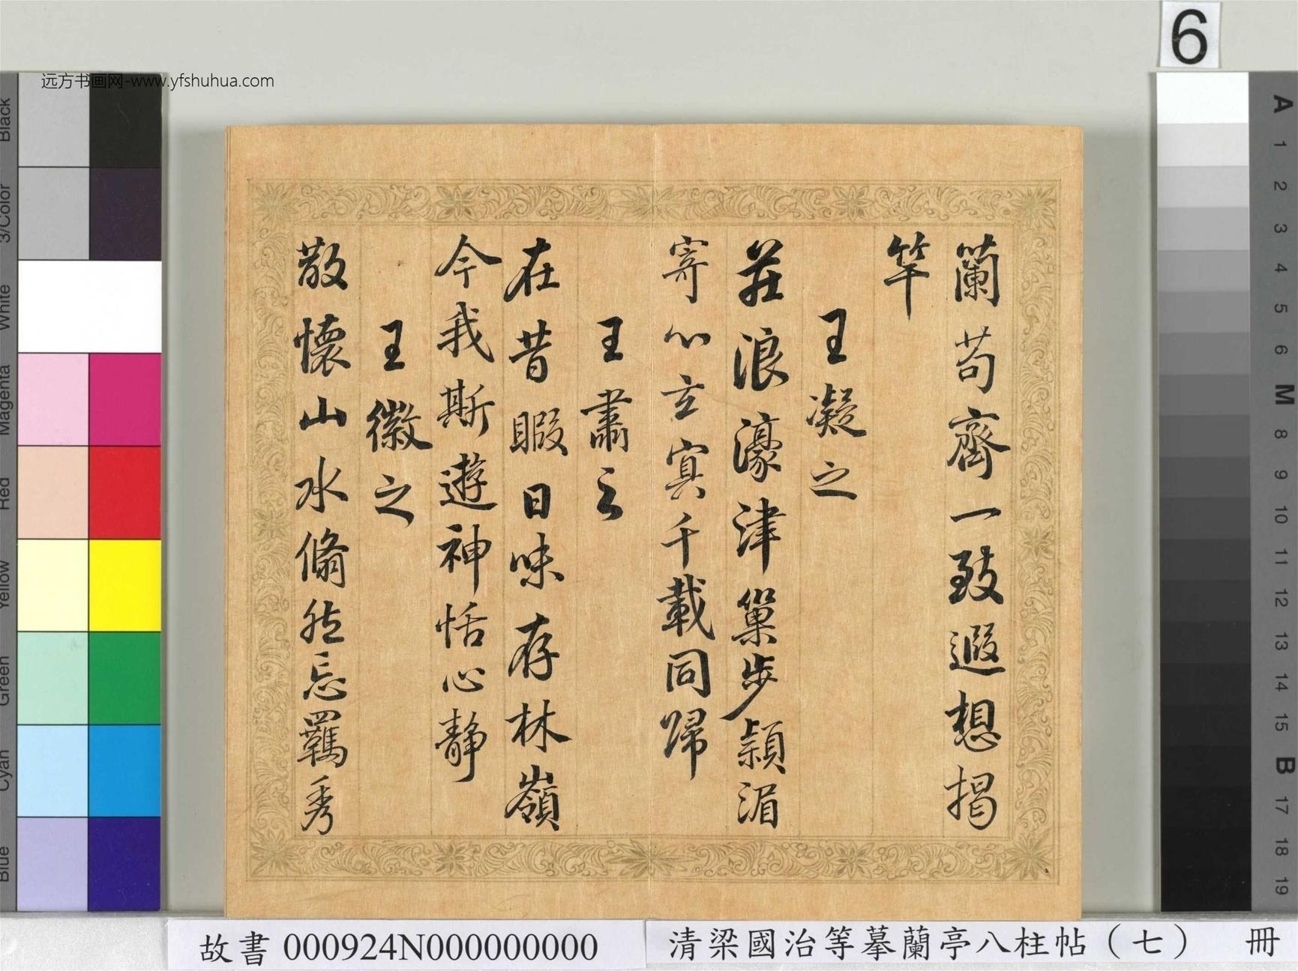 6
远方书画网-www.yfshuhua.com
蘭苟齊一致遐想揭
竿
王凝之
莊浪濠津巢步潁湄
寄心玄寞千載同歸
王肅之
在昔暇日味存林嶺
今我斯遊神恬心靜
王徽之
散懷山水翛然忘羈秀
Black
3/Color
White
Magenta
Red
Yellow
Green
Cyan
Blue
A
1
2
3
4
5
6
M
8
9
10
11
12
13
14
15
B
17
18
19
故書 000924N000000000
清梁國治等摹蘭亭八柱帖（七） 冊